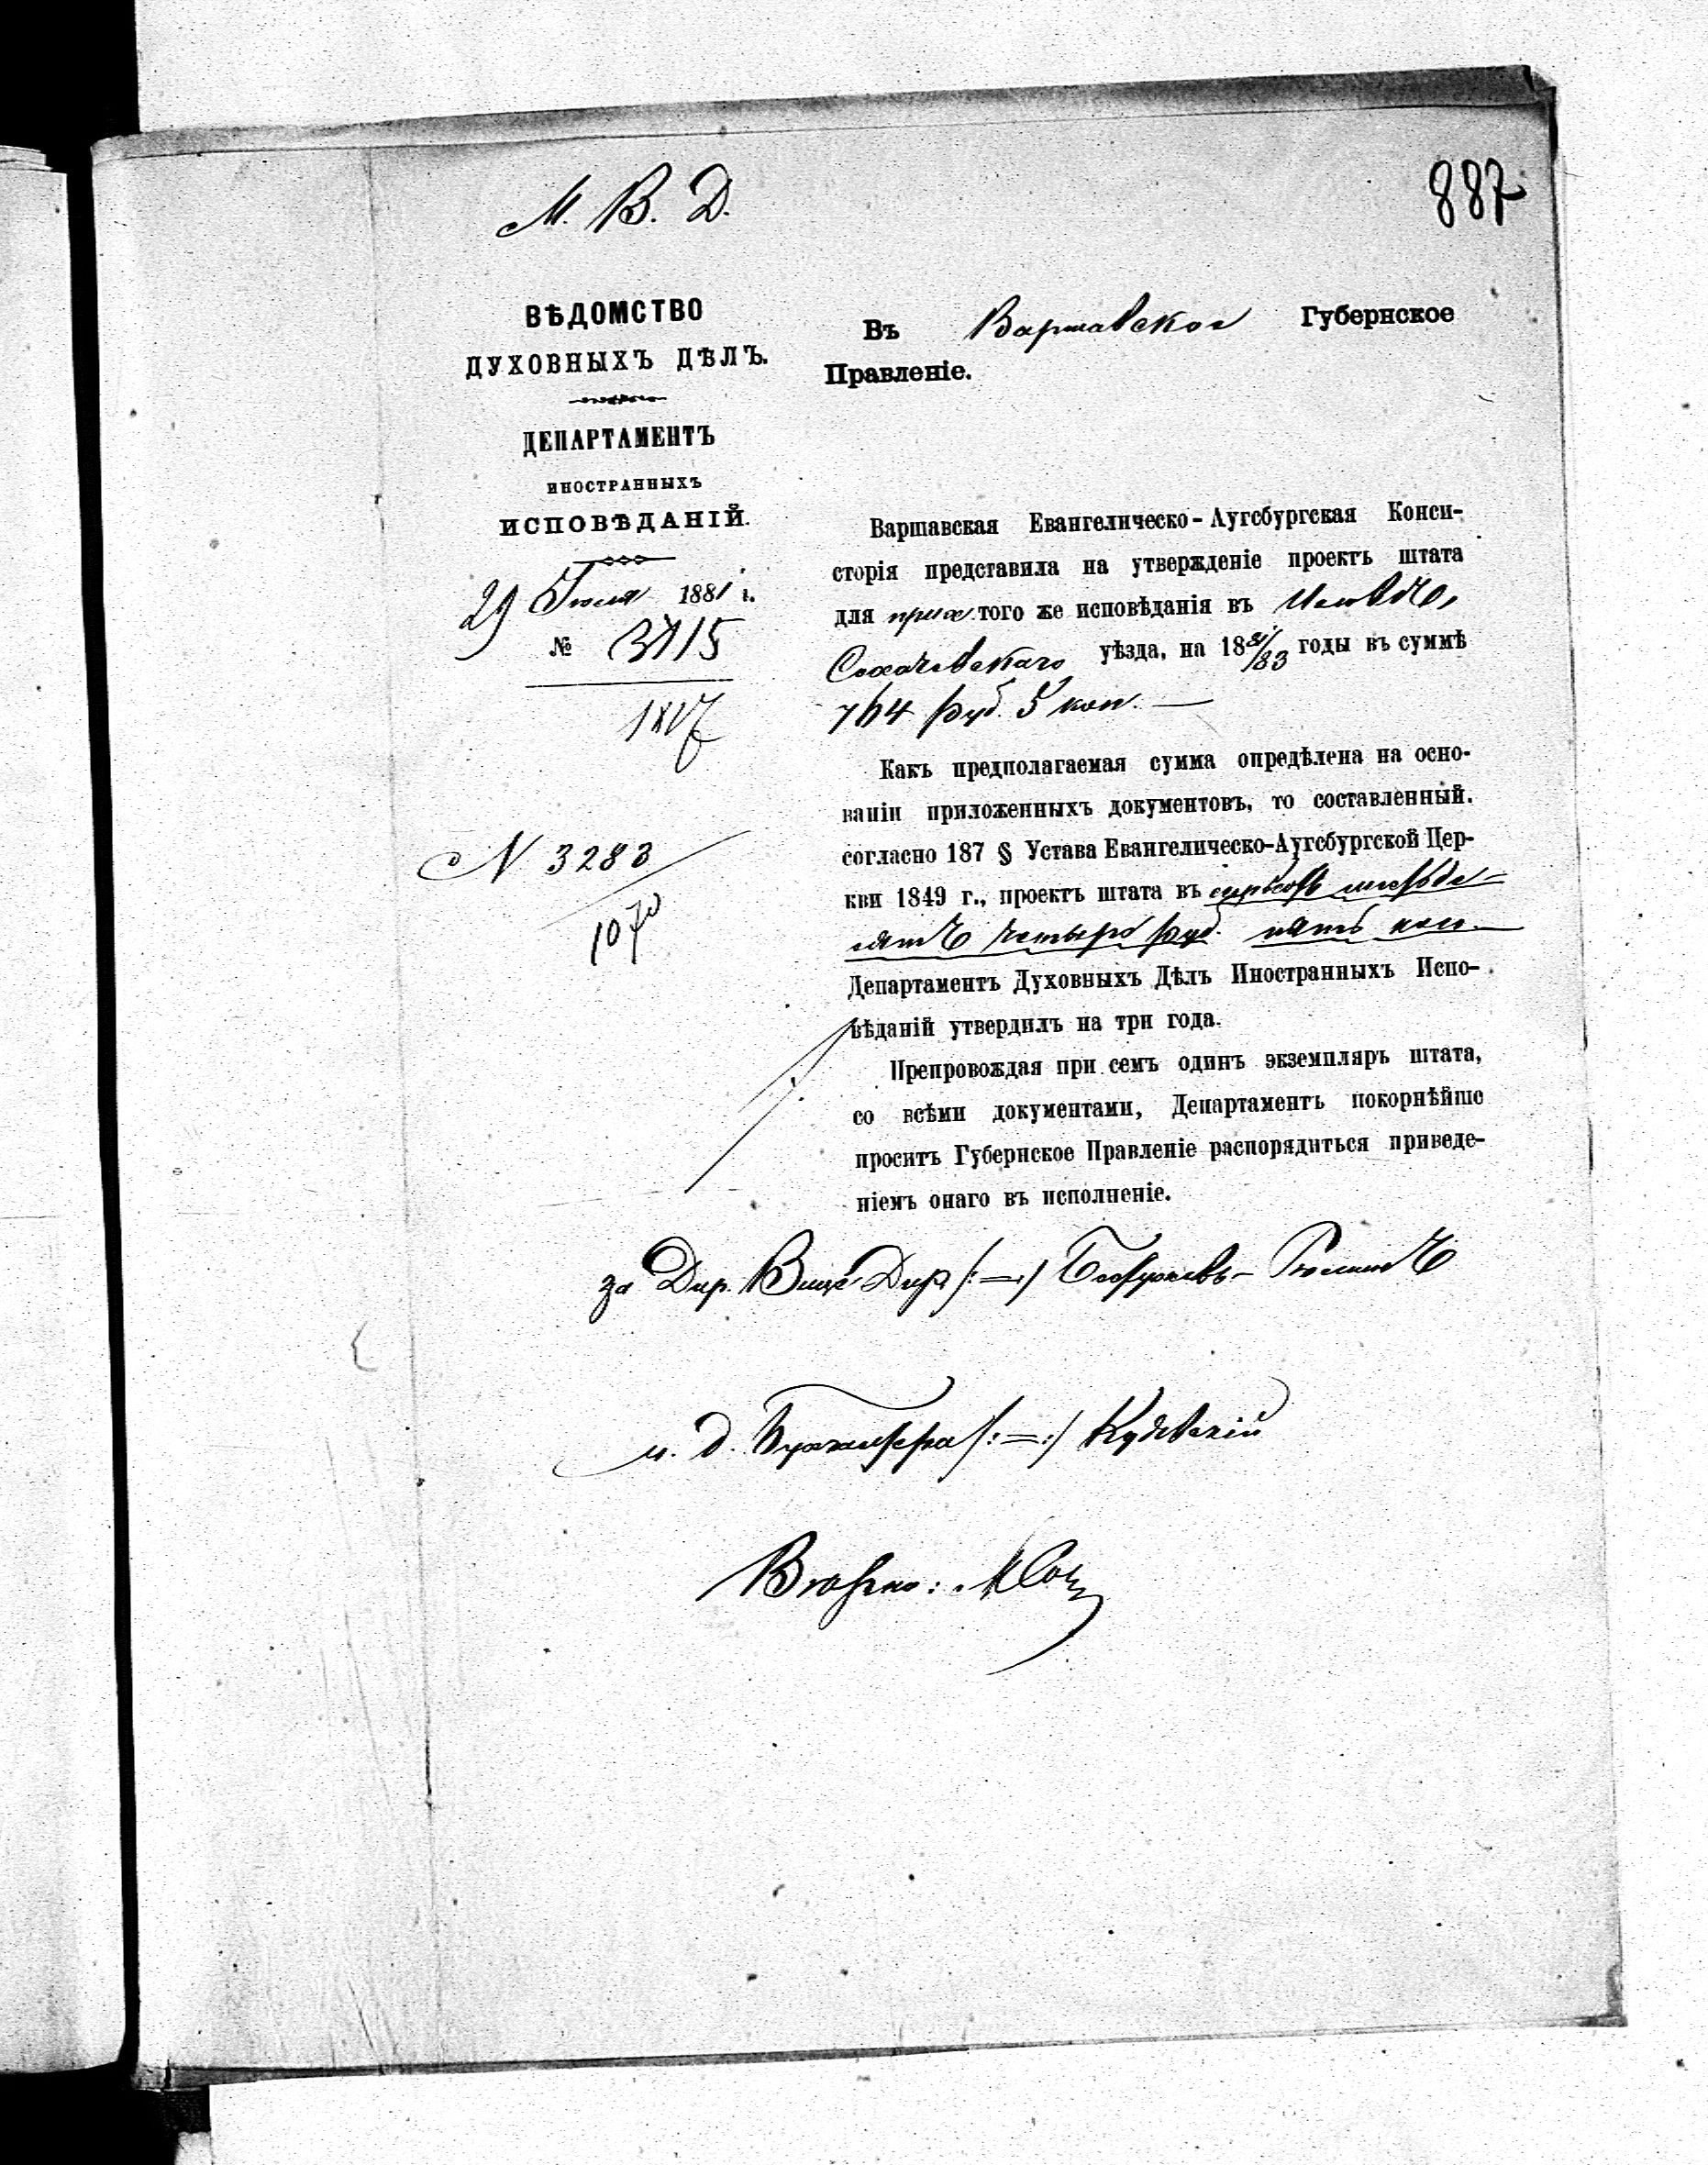 М. В. Д.
887
ВѢДОМСТВО
ДУХОВНЫХЪ ДѢЛЪ.
ДЕПАРТАМЕНТЪ
ИНОСТРАННЫХЪ
ИСПОВѢДАНІЙ.
29 Іюля 1881 г.
№ 3715
1817
N 3283
1070
Въ Варшавское Губернское
Правленіе.
Варшавская Евангелическо-Аугсбургская Конси-
сторія представила на утвержденіе проектъ штата
для прих. того же исповѣданія въ Иловѣ,
Сохачевскаго уѣзда, на 1881/83 годы въ суммѣ
764 руб. 5 коп.
Какъ предполагаемая сумма опредѣлена на осно-
ваніи приложенныхъ документовъ, то составленный.
согласно 187 § Устава Евангелическо-Аугсбургской Цер-
кви 1849 г., проектъ штата въ семьсотъ шестьде-
сятъ четыре руб. пять коп.
Департаментъ Духовныхъ Дѣлъ Иностранныхъ Испо-
вѣданій утвердилъ на три года.
Препровождая при семъ одинъ экземпляръ штата,
со всѣми документами, Департаментъ покорнѣйше
проситъ Губернское Правленіе распорядиться приведе-
ніемъ онаго въ исполненіе.
за Дир. Вице Дир /:=:/
и. д. Бухгалтера /:=:/